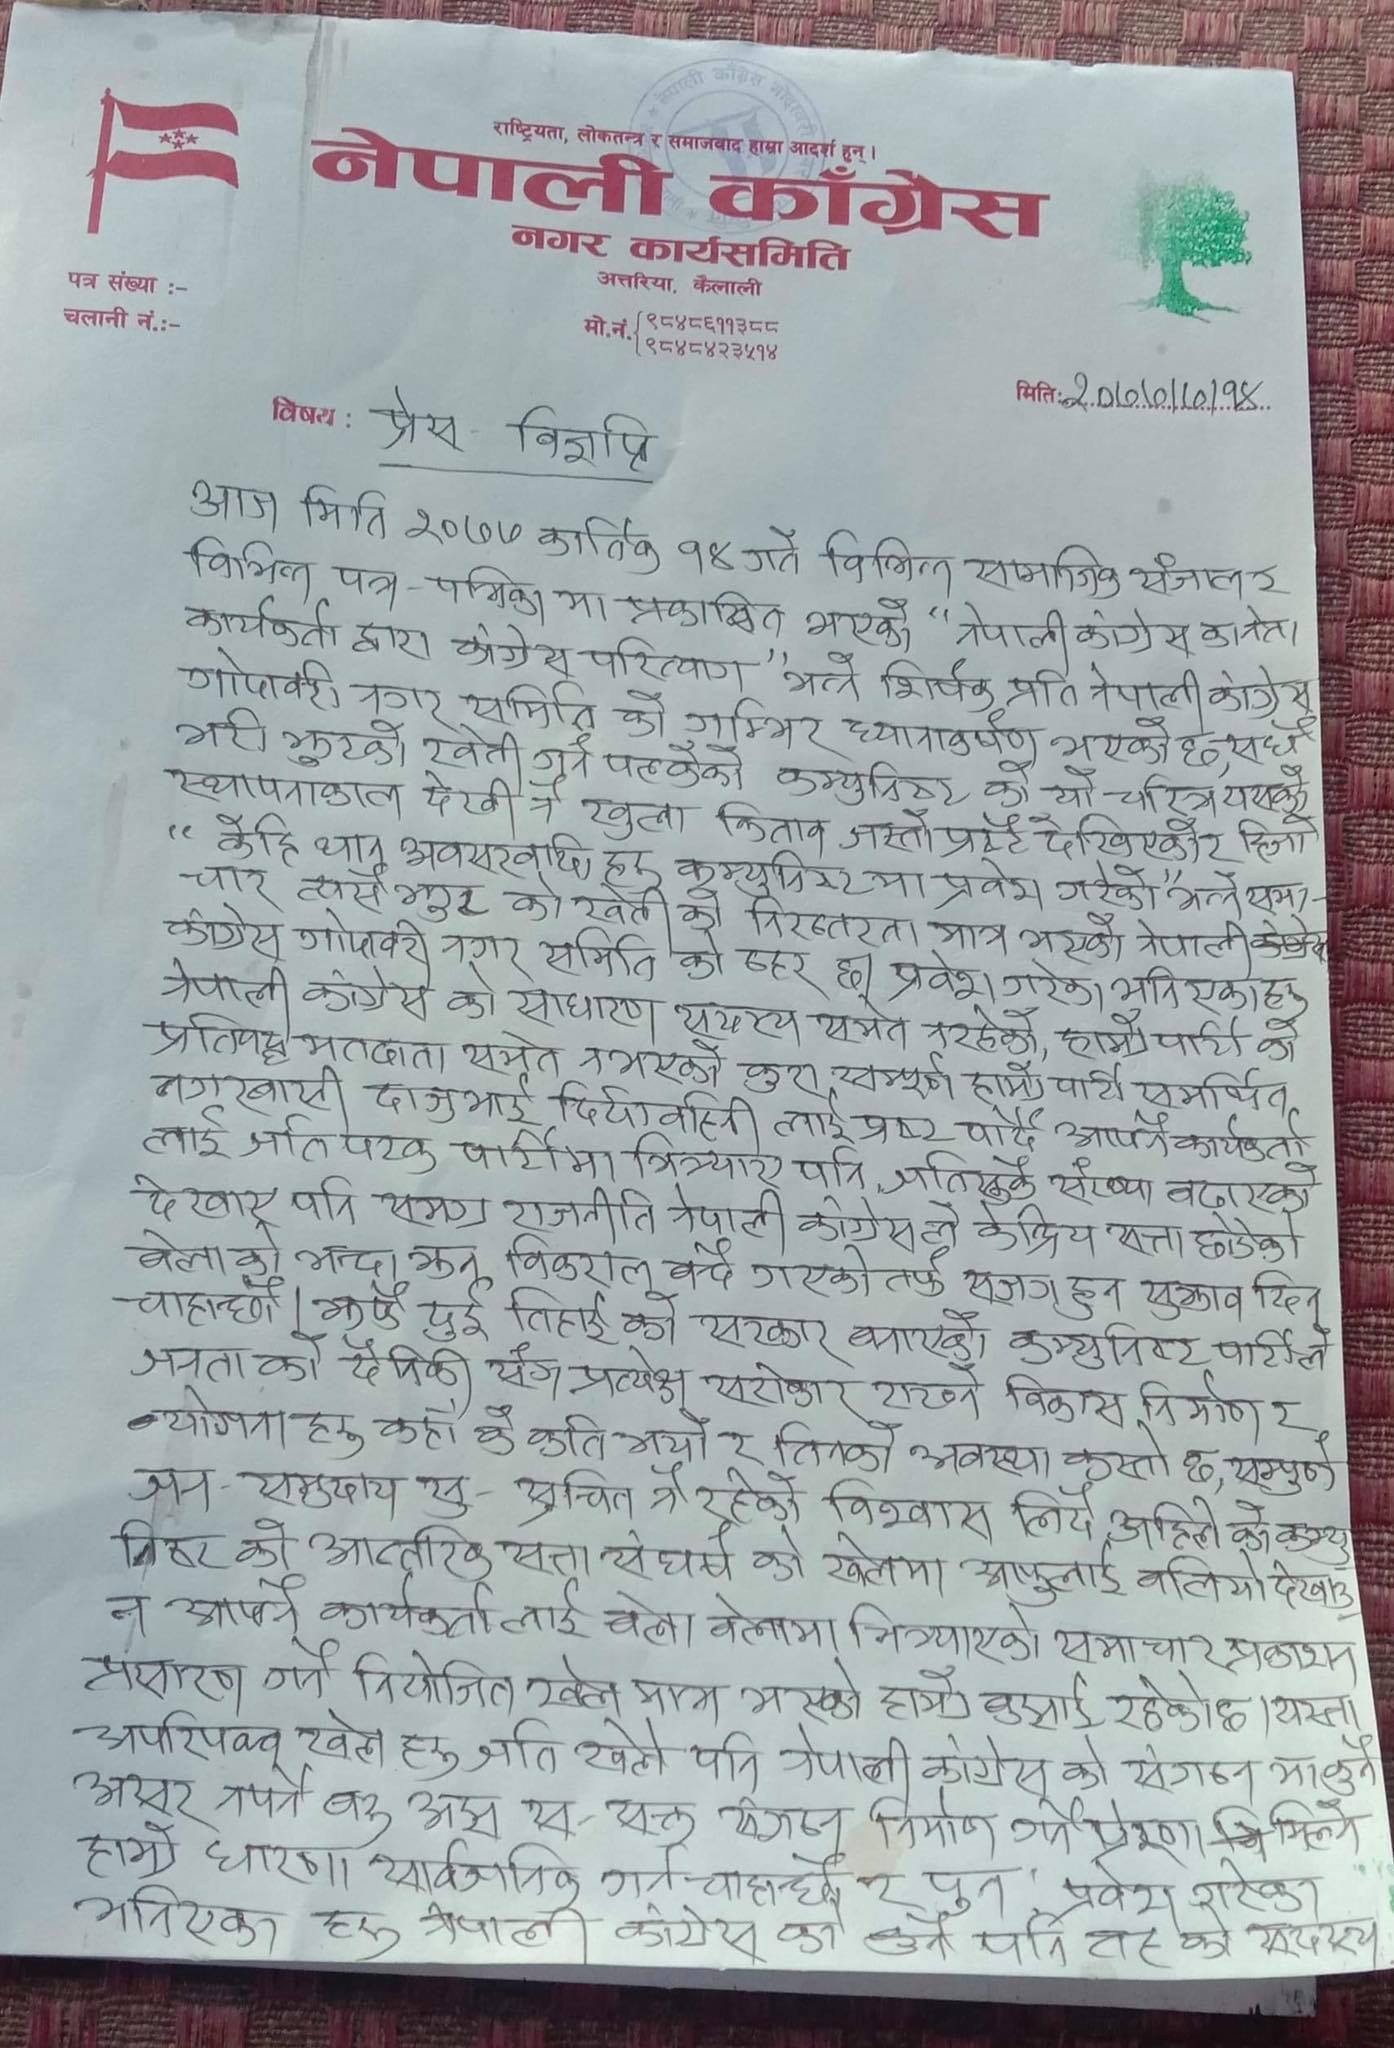 राष्ट्रियता, लोकतन्त्र र समाजवाद हाम्रा आदर्श हुन् ।
नेपाली काँग्रेस
नगर कार्यसमिति
अत्तरिया, कैलाली
पत्र संख्या :-
चलानी नं.:-
मो.नं. ९८४८६११३८८
९८४८४२३५१४
मिति: २०७७/७/१४
विषय : प्रेस - विज्ञप्ति
आज मिति २०७७ कार्तिक १४ गते विभिन्न सामाजिक संजाल र
विभिन्न पत्र - पत्रिका मा प्रकाशित भएको "नेपाली कांग्रेस का नेता
कार्यकर्ता द्वारा कांग्रेस परित्याग" भन्ने शिर्षक प्रति नेपाली कांग्रेस
गोदावरी नगर समिति को गम्भिर ध्यानाकर्षण भएको छ, सधैँ
भरी झुटको खेती गर्न पल्केको कम्युनिष्ट को यो चरित्र यसको
स्थापनाकाल देखी नै खुला किताब जस्तो प्रष्ट देखिएको र हिजो
"केहि थान अवसरवादि हरु कम्युनिष्ट मा प्रवेश गरेको" भन्ने समा-
चार त्यसै झुट को खेती को निरन्तरता मात्र भएको नेपाली
कांग्रेस गोदावरी नगर समिति को ठहर छ। प्रवेश गरेका भनिएका हरु
नेपाली कांग्रेस को साधारण सदस्य समेत नरहेको, हाम्रो पार्टी को
प्रतिबद्ध मतदाता समेत नभएको कुरा सम्पूर्ण हाम्रो पार्टी समर्पित
नगरबासी दाजुभाई दिदीवहिनी लाई प्रष्ट पार्दै आफ्नै कार्यकर्ता
लाई जति पटक पार्टीमा भित्र्याए पनि, जतिसुकै संख्या बढाएको
देखाए पनि समग्र राजनीति नेपाली कांग्रेस ले केन्द्रिय सत्ता छोडेको
बेला को भन्दा झन् विकराल बन्दै गएको तर्फ सजग हुन सुझाव दिन
चाहान्छौँ। झण्डै दुई तिहाई को सरकार बनाएको कम्युनिष्ट पार्टीले
जनता को दैनिकी संग प्रत्यक्ष सरोकार राख्ने विकास निर्माण र
योजना हरु कहाँ के कति भयो र तिनको अवस्था कस्तो छ, सम्पुर्ण
जन - समुदाय सु - सूचित नै रहेको विश्वास लिदै अहिले को कम्यु
निष्ट को आन्तरिक सत्ता संघर्ष को खेलमा आफुलाई बलियो देखाउ
न आफ्नै कार्यकर्ता लाई बेला बेलामा भित्र्याएको समाचार प्रकाशन
प्रसारण गर्ने नियोजित खेल मात्र भएको हाम्रो बुझाई रहेको छ। यस्ता
अपरिपक्व खेल हरु जति खेले पनि नेपाली कांग्रेस को संगठन मा कुनै
असर नपर्ने बरु अझ स - सक्त संगठन निर्माण गर्न प्रेरणा मिल्ने
हाम्रो धारणा सार्वजनिक गर्न चाहान्छौ र पुन: प्रवेश गरेका
भनिएका हरु नेपाली कांग्रेस को कुनै पनि तह को सदस्य